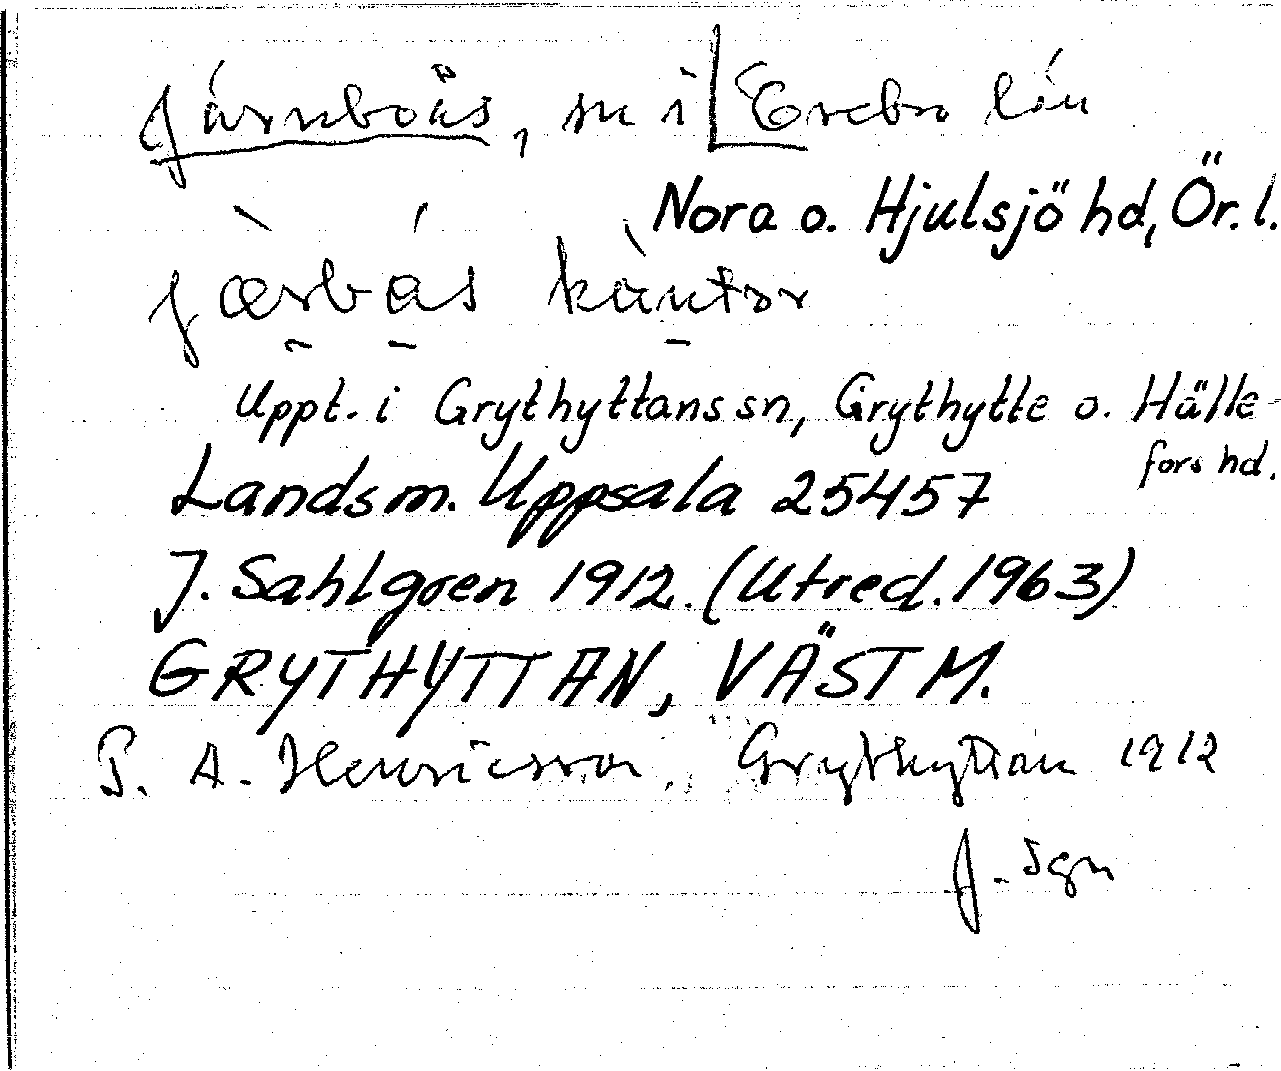 Järnboås, sn i Örebro län
Nora o. Hjulsjö hd, Ör. l.
jærbås kàntor
Uppt. i Grythyttans sn, Grythytte o. Hälle-
fors hd.
Landsm. Uppsala 25457
J. Sahlgren 1912. (Utred. 1963)
GRYTHYTTAN, VÄSTM.
P. A. Henricsson, Grythyttan 1912
J. Sgn